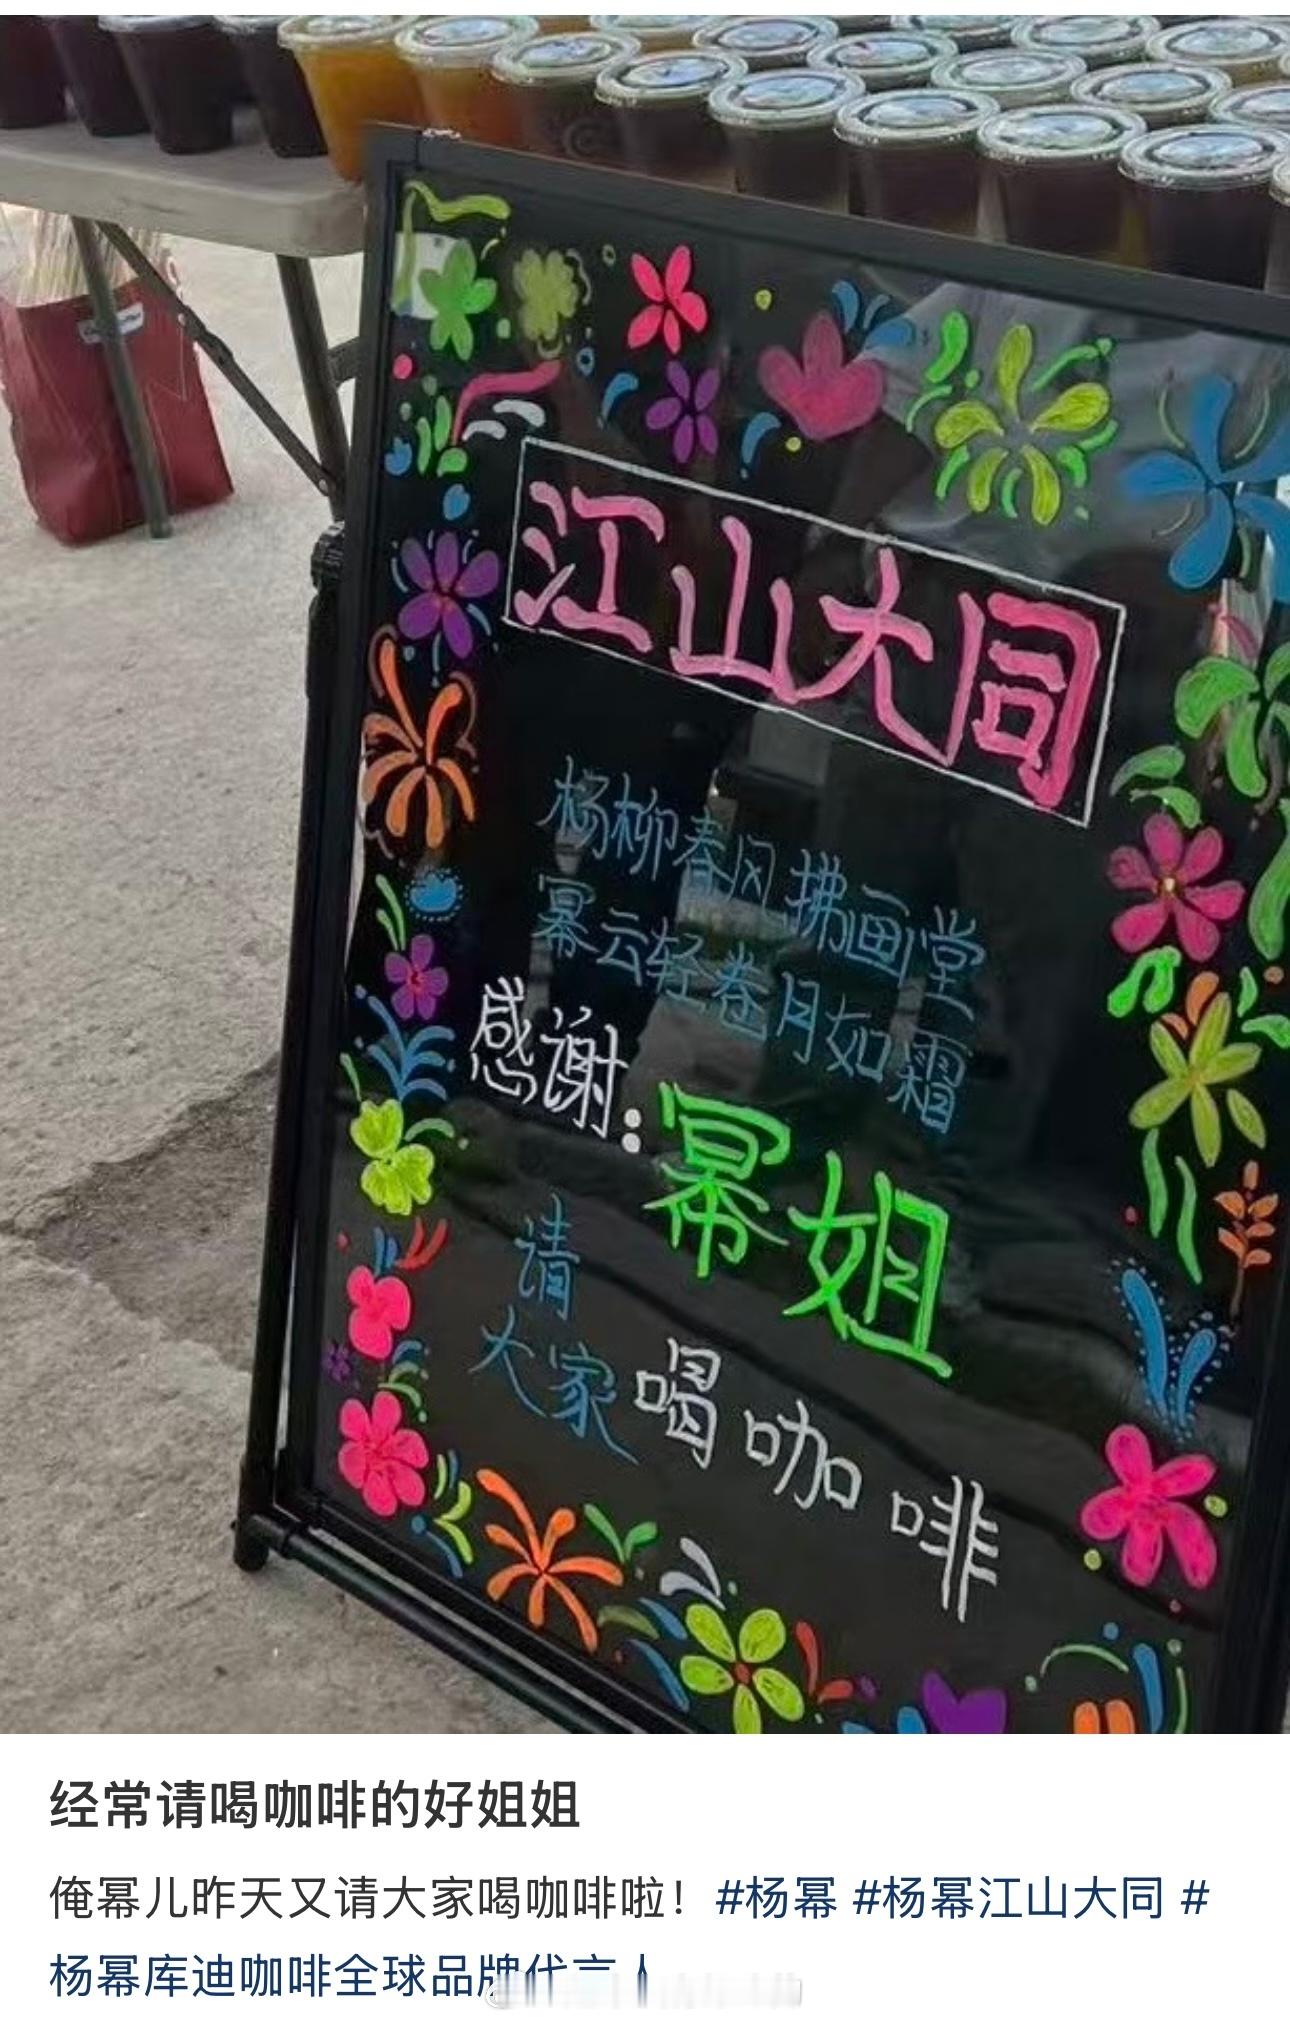 江山大同
杨柳春风拂画堂
幂云轻卷月如霜
感谢:
幂姐
请
大家喝咖啡
经常请喝咖啡的好姐姐
俺幂儿昨天又请大家喝咖啡啦！#杨幂 #杨幂江山大同 #
杨幂库迪咖啡全球品牌代言人